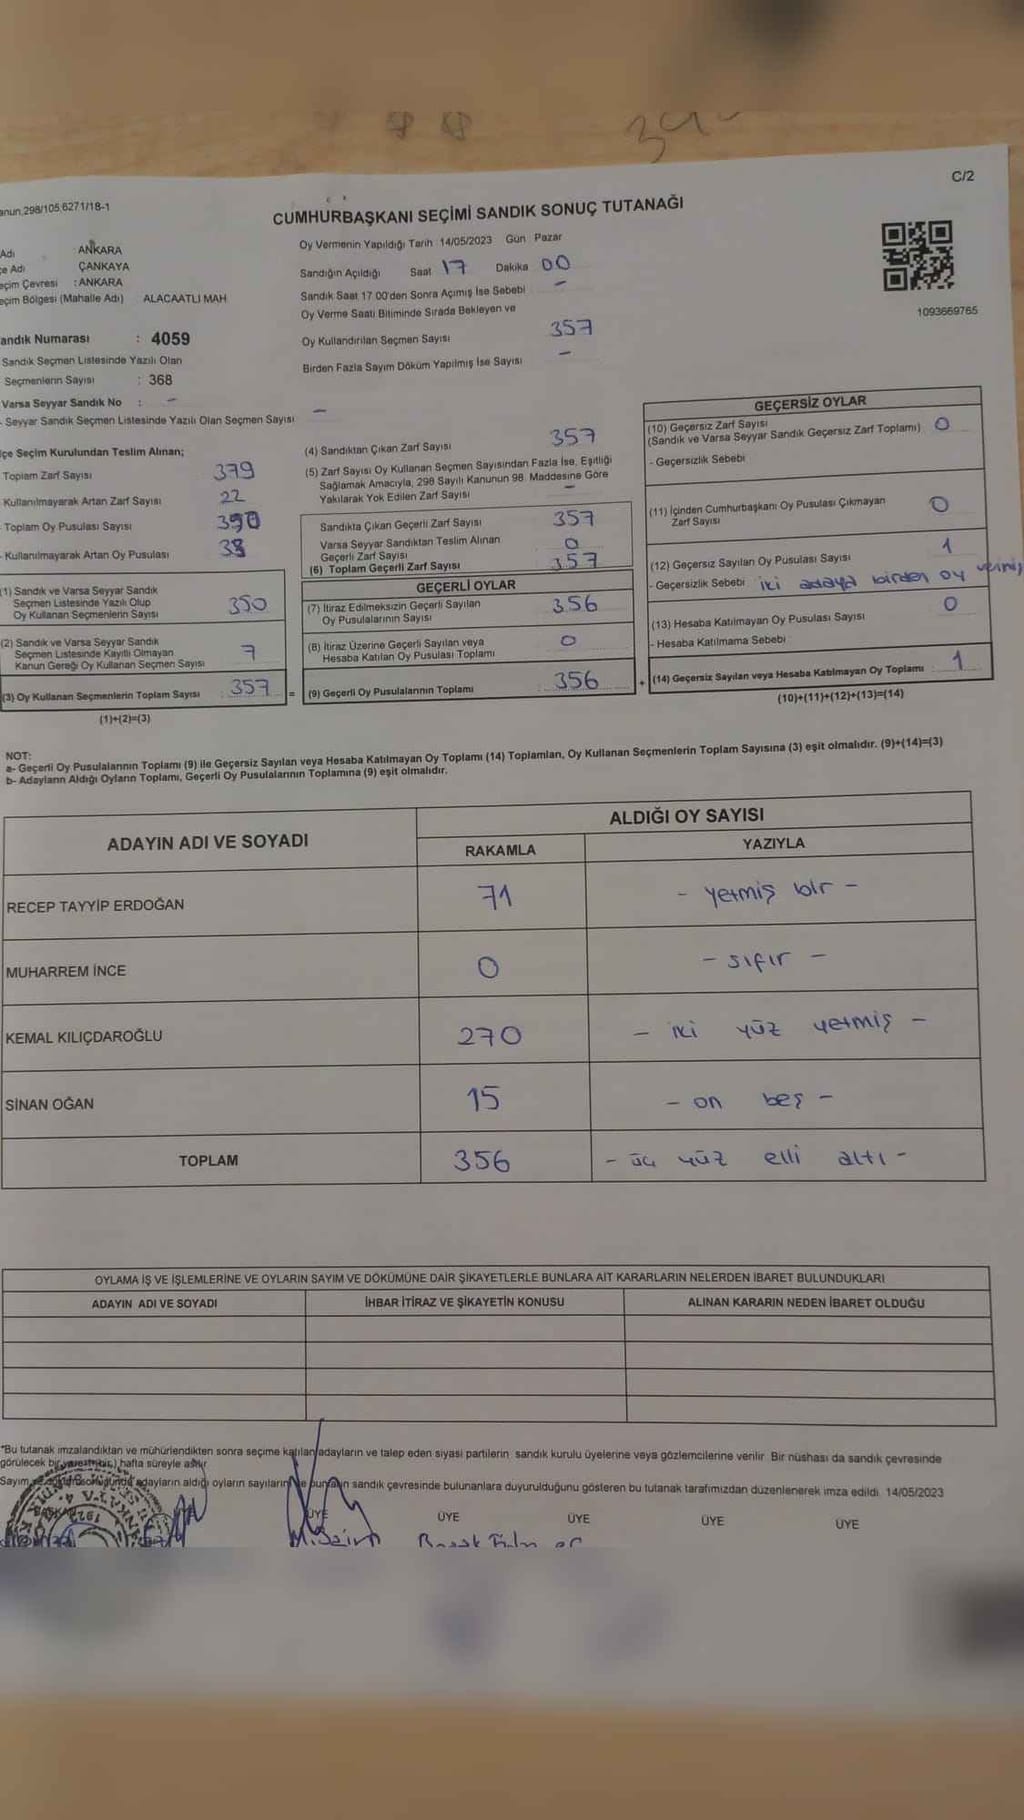 C/2
anun,298/105,6271/18-1
CUMHURBAŞKANI SEÇİMİ SANDIK SONUÇ TUTANAĞI
Adı : ANKARA
çe Adı : ÇANKAYA
eçim Çevresi : ANKARA
eçim Bölgesi (Mahalle Adı) ALACAATLI MAH
andık Numarası : 4059
Sandık Seçmen Listesinde Yazılı Olan
Seçmenlerin Sayısı : 368
Varsa Seyyar Sandık No : -
- Seyyar Sandık Seçmen Listesinde Yazılı Olan Seçmen Sayısı -
Oy Vermenin Yapıldığı Tarih :14/05/2023 Gün Pazar
Sandığın Açıldığı Saat 17 Dakika 00
Sandık Saat 17 00'den Sonra Açımış İse Sebebi -
Oy Verme Saati Bitiminde Sırada Bekleyen ve
Oy Kullandırılan Seçmen Sayısı 357
Birden Fazla Sayım Döküm Yapılmış İse Sayısı -
1093669765
lçe Seçim Kurulundan Teslim Alınan;
Toplam Zarf Sayısı 379
Kullanılmayarak Artan Zarf Sayısı 22
Toplam Oy Pusulası Sayısı 390
- Kullanılmayarak Artan Oy Pusulası
(1) Sandık ve Varsa Seyyar Sandık
Seçmen Listesinde Yazılı Olup
Oy Kullanan Seçmenlerin Sayısı 350
(2) Sandık ve Varsa Seyyar Sandık
Seçmen Listesinde Kayıtlı Olmayan
Kanun Gereği Oy Kullanan Seçmen Sayısı 7
(3) Oy Kullanan Seçmenlerin Toplam Sayısı 357 =
(1)+(2)=(3)
(4) Sandıktan Çıkan Zarf Sayısı 357
(5) Zarf Sayısı Oy Kullanan Seçmen Sayısından Fazla İse, Eşitliği
Sağlamak Amacıyla, 298 Sayılı Kanunun 98. Maddesine Göre
Yakılarak Yok Edilen Zarf Sayısı -
Sandıkta Çıkan Geçerli Zarf Sayısı 357
Varsa Seyyar Sandıktan Teslim Alınan
Geçerli Zarf Sayısı 0
(6) Toplam Geçerli Zarf Sayısı 357
GEÇERLİ OYLAR
(7) İtiraz Edilmeksizin Geçerli Sayılan
Oy Pusulalarının Sayısı 356
(8) İtiraz Üzerine Geçerli Sayılan veya
Hesaba Katılan Oy Pusulası Toplamı 0
(9) Geçerli Oy Pusulalarının Toplamı 356 +
GEÇERSİZ OYLAR
(10) Geçersiz Zarf Sayısı
(Sandık ve Varsa Seyyar Sandık Geçersiz Zarf Toplamı) 0
- Geçersizlik Sebebi
(11) İçinden Cumhurbaşkanı Oy Pusulası Çıkmayan
Zarf Sayısı 0
(12) Geçersiz Sayılan Oy Pusulası Sayısı 1
- Geçersizlik Sebebi iki adaya birden oy vermiş
(13) Hesaba Katılmayan Oy Pusulası Sayısı 0
- Hesaba Katılmama Sebebi
(14) Geçersiz Sayılan veya Hesaba Katılmayan Oy Toplamı 1
(10)+(11)+(12)+(13)=(14)
NOT:
a- Geçerli Oy Pusulalarının Toplamı (9) ile Geçersiz Sayılan veya Hesaba Katılmayan Oy Toplamı (14) Toplamları, Oy Kullanan Seçmenlerin Toplam Sayısına (3) eşit olmalıdır. (9)+(14)=(3)
b- Adayların Aldığı Oyların Toplamı, Geçerli Oy Pusulalarının Toplamına (9) eşit olmalıdır.
ADAYIN ADI VE SOYADI ALDIĞI OY SAYISI
RAKAMLA YAZIYLA
RECEP TAYYİP ERDOĞAN 71 - yetmiş bir -
MUHARREM İNCE 0 - sıfır -
KEMAL KILIÇDAROĞLU 270 - iki yüz yetmiş -
SİNAN OĞAN 15 - on beş -
TOPLAM 356 - üç yüz elli altı -
OYLAMA İŞ VE İŞLEMLERİNE VE OYLARIN SAYIM VE DÖKÜMÜNE DAİR ŞİKAYETLERLE BUNLARA AİT KARARLARIN NELERDEN İBARET BULUNDUKLARI
ADAYIN ADI VE SOYADI İHBAR İTİRAZ VE ŞİKAYETİN KONUSU ALINAN KARARIN NEDEN İBARET OLDUĞU
*Bu tutanak imzalandıktan ve mühürlendikten sonra seçime katılan adayların ve talep eden siyasi partilerin sandık kurulu üyelerine veya gözlemcilerine verilir. Bir nüshası da sandık çevresinde
görülecek bir hafta süreyle asılır
Sayım adayların aldığı oyların sayılarını ve bunların sandık çevresinde bulunanlara duyurulduğunu gösteren bu tutanak tarafımızdan düzenlenerek imza edildi. 14/05/2023
BAŞKAN ÜYE ÜYE ÜYE ÜYE ÜYE